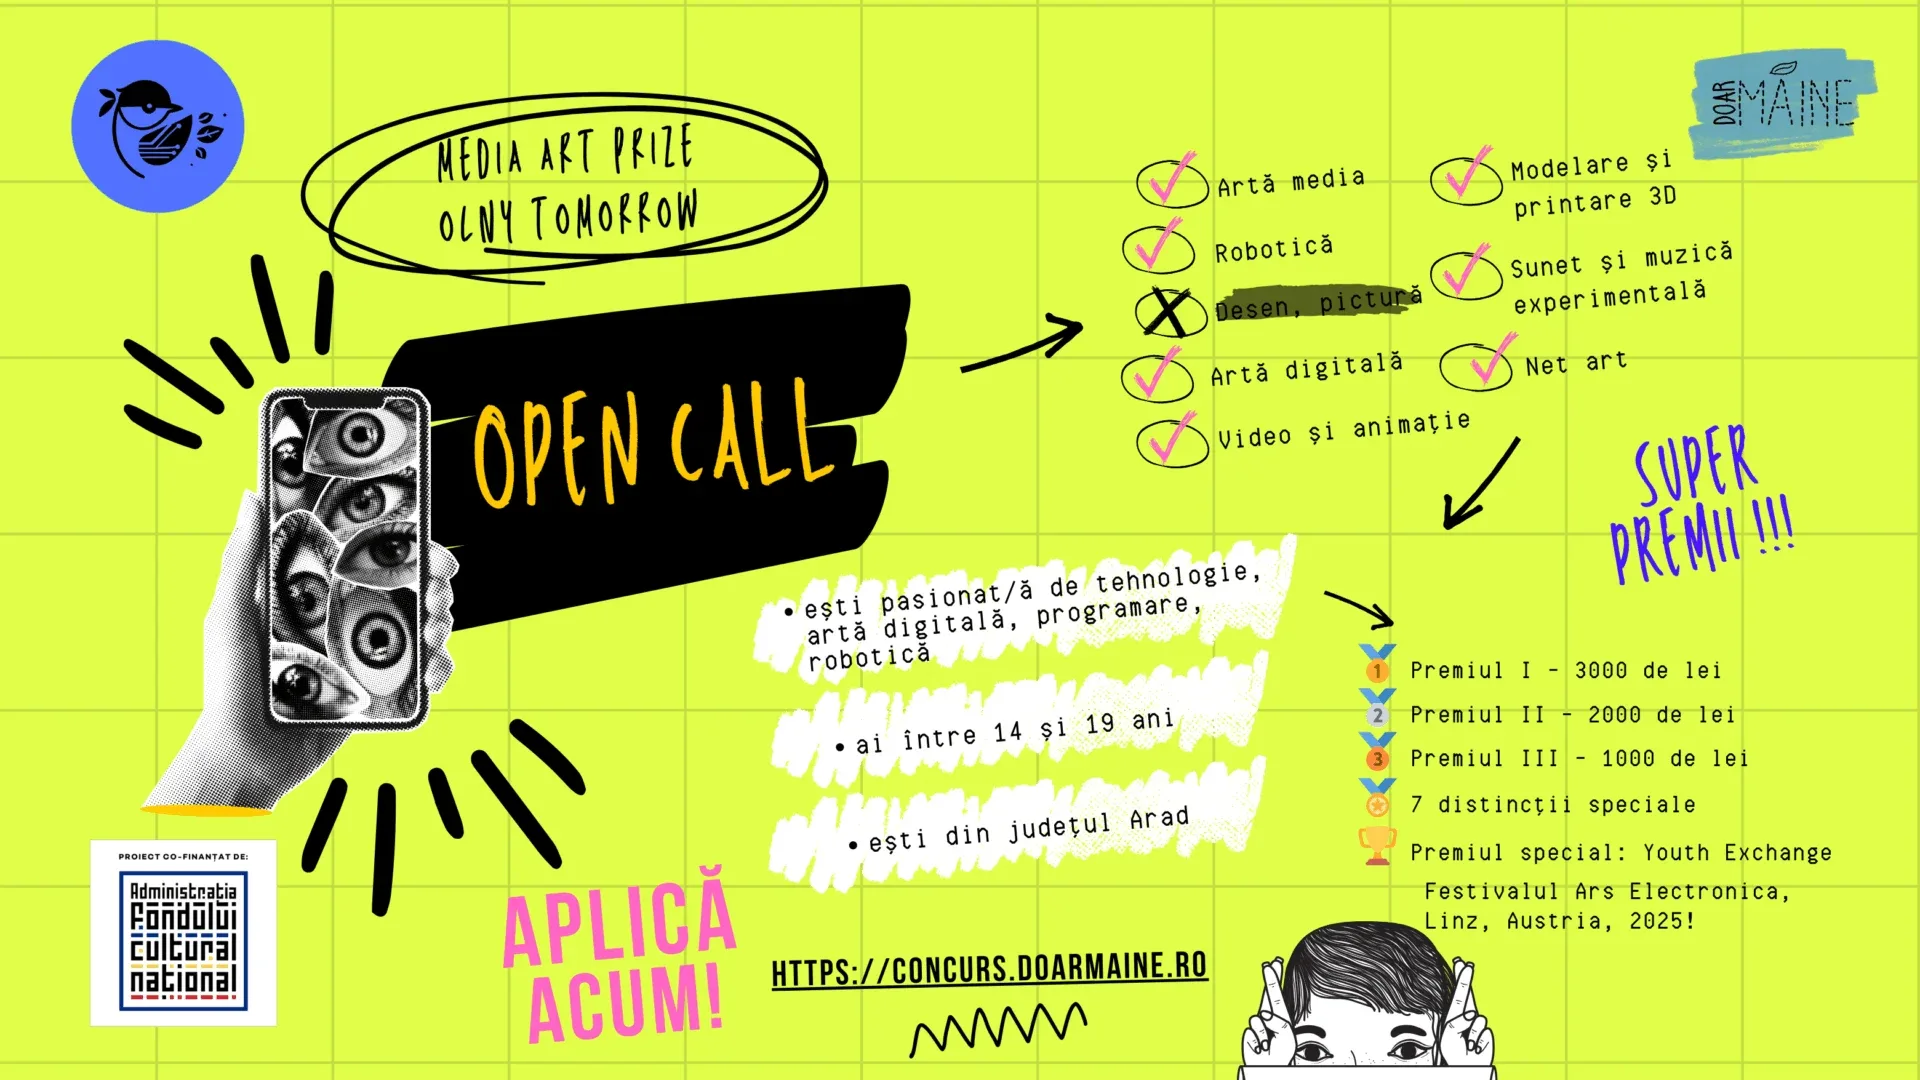 MEDIA ART PRIZE
OLNY TOMORROW
OPEN CALL
DOAR MÂINE
Artă media
Robotică
Desen, pictură
Artă digitală
Video și animație
Modelare și
printare 3D
Sunet și muzică
experimentală
Net art
SUPER
PREMII !!!
• ești pasionat/ă de tehnologie,
artă digitală, programare,
robotică
• ai între 14 și 19 ani
• ești din județul Arad
1 Premiul I - 3000 de lei
2 Premiul II - 2000 de lei
3 Premiul III - 1000 de lei
7 distincții speciale
Premiul special: Youth Exchange
Festivalul Ars Electronica,
Linz, Austria, 2025!
PROIECT CO-FINANȚAT DE:
Administrația
fondului
cultural
național
APLICĂ
ACUM!
HTTPS://CONCURS.DOARMAINE.RO